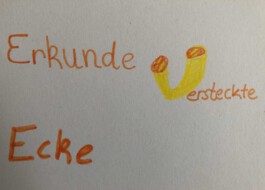 Erkunde Versteckte
Ecke